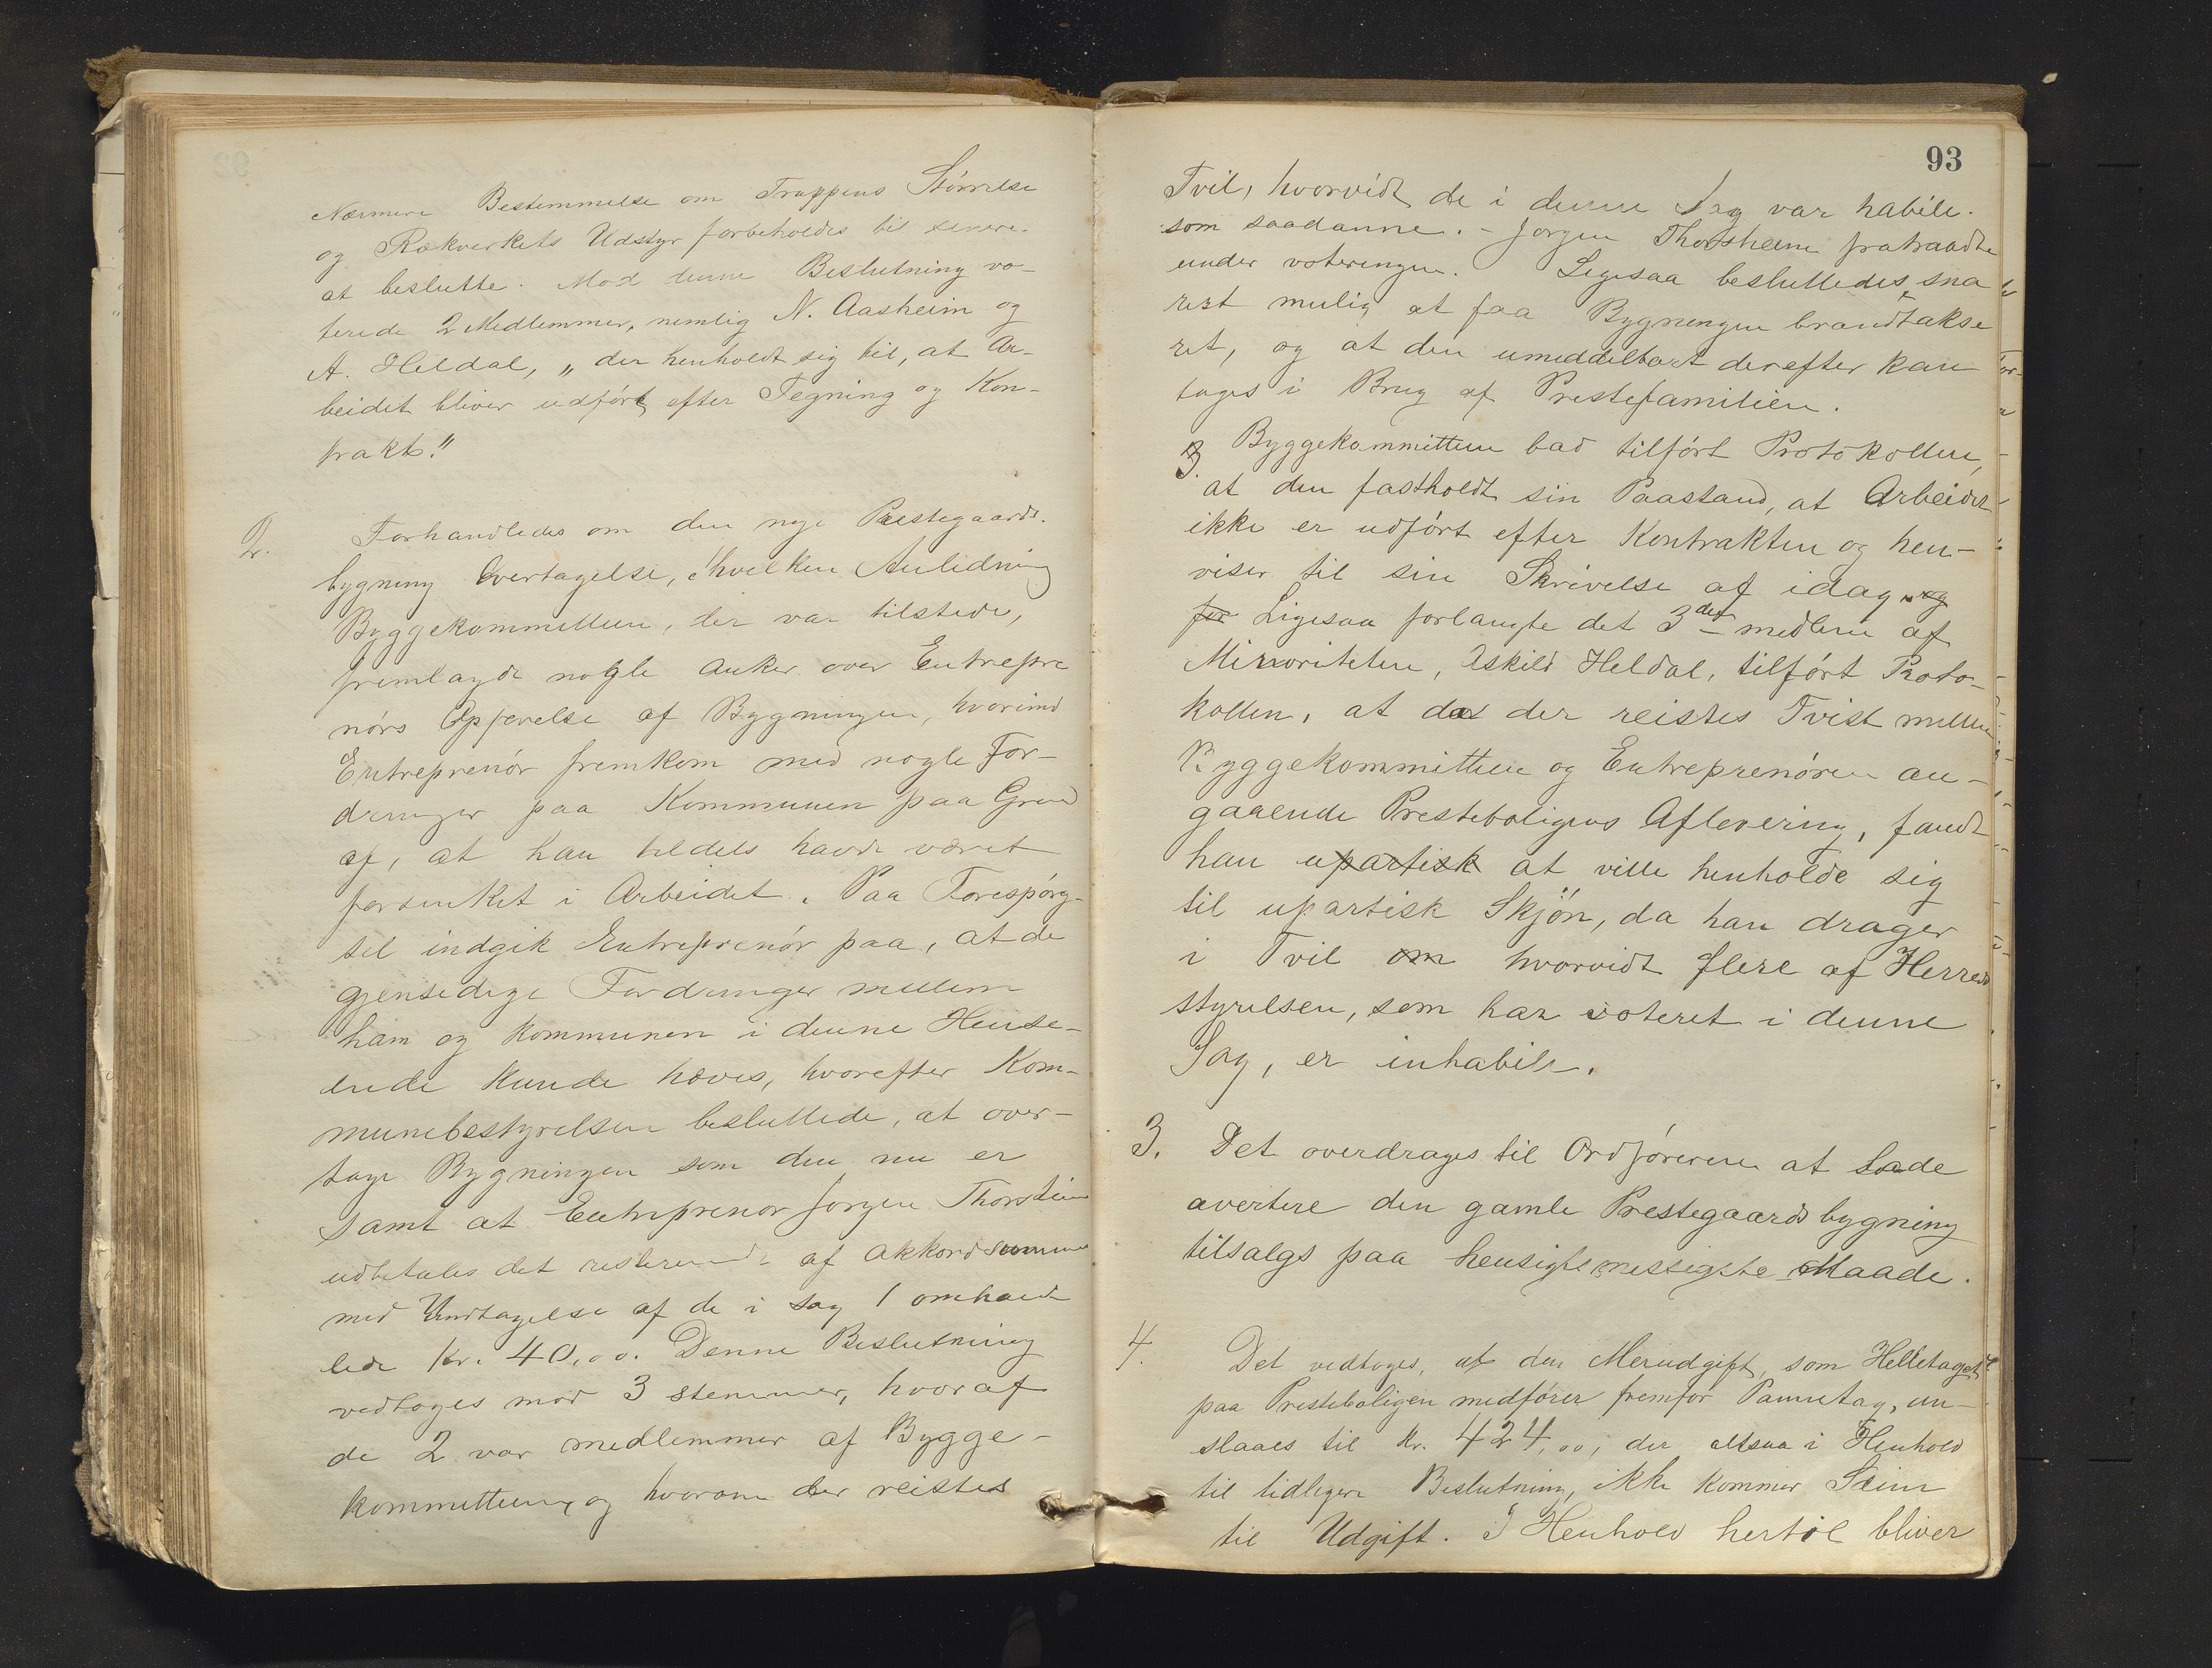 Nærmere Bestemmelse om Trappens Størrelse
og Rækverkets Udstyr forbeholdes til senere
at beslutte. Mod denne Beslutning vo-
terede 2 Medlemmer, nemlig N. Aasheim og
A. Heldal, „der henholdt sig til, at Ar-
beidet bliver udført efter Tegning og Kon-
trakt."
2. Forhandledes om den nye Prestegaards-
bygning Overtagelse, i hvilken Anledning
Byggekommitteen, der var tilstede,
fremlagde nogle Anker over Entrepre
nørs Opførelse af Bygningen, hvorimod
Entreprenør fremkom med nogle For-
dringer paa Kommunen paa Grund
af, at han tildels havde været
forsinket i Arbeidet. Paa Forespørg-
sel indgik Entreprenør paa, at de
gjensidige Fordringer mellem
ham og Kommunen i denne Hense-
ende kunde hæves, hvorefter Kom-
munebestyrelsen besluttede, at over-
tage Bygningen som den nu er
samt at Entreprenør Jørgen Thorsheim
udbetales det resterende af Akkordsummen
med Undtagelse af de i Sag 1 omhand
lede Kr. 40,00. Denne Beslutning
vedtoges mod 3 stemmer, hvoraf
de 2 var medlemmer af Bygge-
kommitteen, og hvorom der reistes
93
Tvil, hvorvidt de i denne Sag var habile
som saadanne. - Jørgen Thorsheim fratraadte
under voteringen. Ligesaa besluttedes, sna
rest mulig at faa Bygningen brandtakse
ret, og at den umiddelbart derefter kan
tages i Brug af Prestefamilien.
3. Byggekommitteen bad tilført Protokollen,
at den fastholdt sin Paastand, at Arbeidet
ikke er udført efter Kontrakten og hen-
viser til sin Skrivelse af idag. og
for Ligesaa forlangte det 3det medlem af
Minoriteten, Askild Heldal, tilført Proto-
kollen, at da der reistes Tvist mellem
Byggekommitteen og Entreprenøren an-
gaaende Presteboligens Aflevering, fandt
han upartisk at ville henholde sig
til upartisk Skjøn, da han drager
i Tvil om hvorvidt flere af Herreds
styrelsen, som har voteret i denne
Sag, er inhabile.
3. Det overdrages til Ordføreren at lade
avertere den gamle Prestegaardsbygning
tilsalgs paa hensigtsmessigste Maade.
4. Det vedtoges, at den Merudgift, som Helletaget
paa Presteboligen medfører fremfor Pannetag, an-
slaaes til Kr. 424,00, der altsaa i Henhold
til tidligere Beslutning, ikke kommer Seim
til Udgift. I Henhold hertil bliver